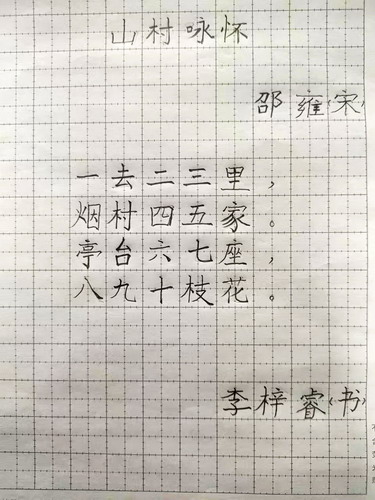 山村咏怀
邵雍(宋)
一去二三里，
烟村四五家。
亭台六七座，
八九十枝花。
李梓睿(书)